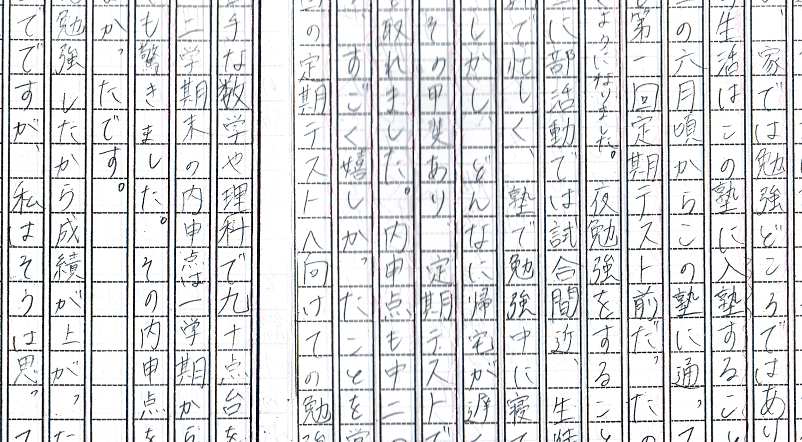 、家では勉強どころではあり
生活はこの塾に入塾するこ
の六月頃からこの塾に通って
第一回定期テスト前だった
ようになりました。夜勉強をすること
に部活動では試合間近、生
で忙しく、塾で勉強中に寝
しかし、どんなに帰宅が遅
その甲斐あり 定期テストで
取れました。内申点も中二
すごく嬉しかったことを覚
の定期テストへ向けての勉強
手な数学や理科で九十点台を
二学期末の内申点は一学期から
も驚きました。その内申点を
かったです。
勉強したから成績が上がった
てですが、私はそうは思って